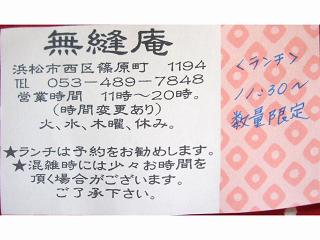 無縫庵
浜松市西区篠原町 1194
TEL 053-489-7848
営業時間 11時～20時。
(時間変更あり)
火、水、木曜、休み。
★ランチは予約をお勧めします。
★混雑時には少々お時間を
頂く場合がございます。
ご了承下さい。
<ランチ>
11:30～
数量限定